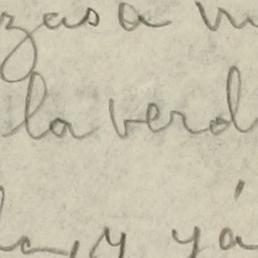 zas a
la verd
y yá